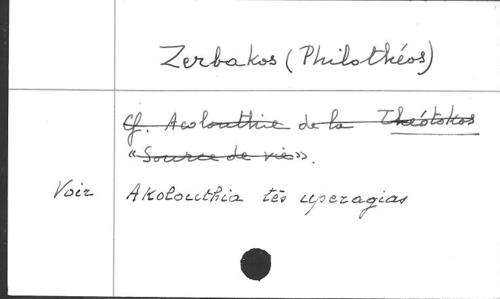 Zerbakos (Philothéos)
Cf. Acolouthie de la Théotokos
"Source de vie".
Voir Akolouthia tēs uperagias